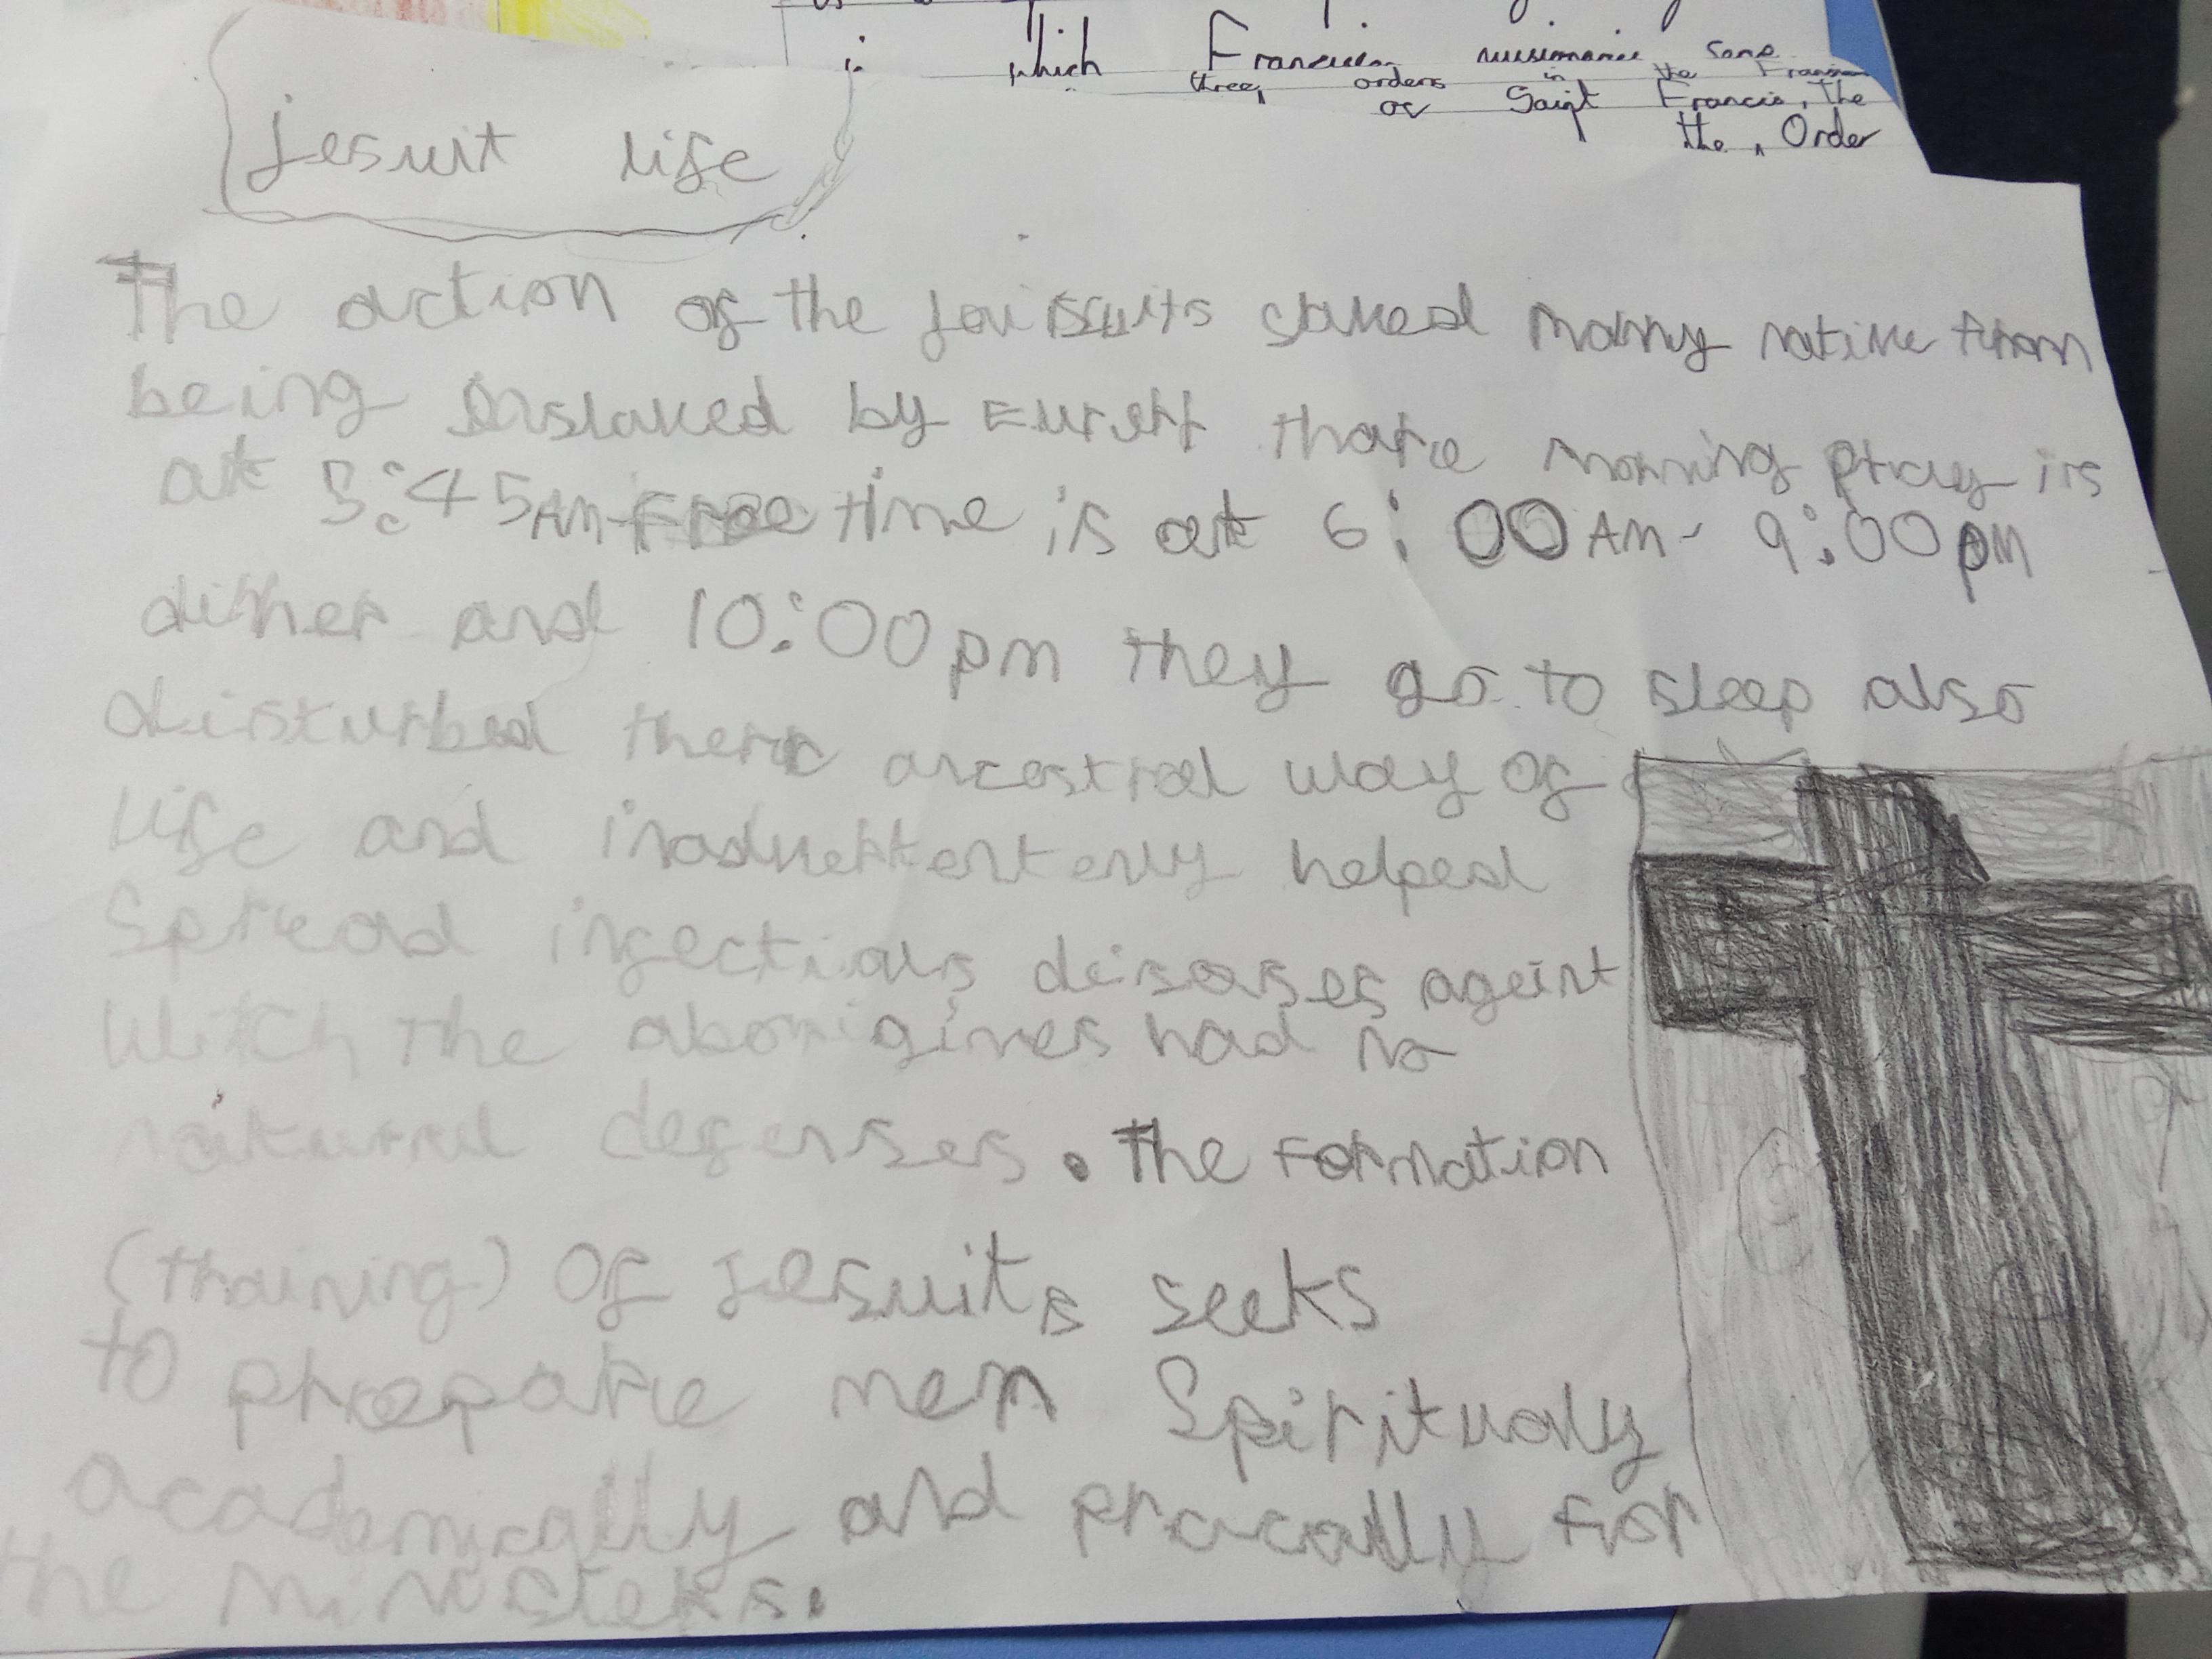 which
three, orders in the
or Saint Francis, the
the, Order
jesuit life
The action of the jaissuits saved many native from
being Inslaved by Eureff thare morning pray is
at 5:45AM Free time is at 6:00 AM- 9:00pm
dither and 10:00pm they go to sleep also
disturbed there ancestral way of
life and inadvertentenly helped
Spread infectious diseases ageint
Witch the aborigines had no
natural defenses. The Formation
(training) Of Jesuits seeks
to prepare men Spiritualy
academically and pracally for
the Minsters.